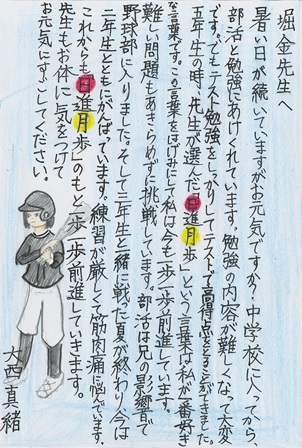 堀金先生へ
暑い日が続いていますがお元気ですか？中学校に入ってから
部活と勉強にあけくれています。勉強の内容が難しくなって大変
です。でもテスト勉強をしっかりしてテストで高得点をとることができました。
五年生の時、先生が選んだ「日進月歩」という言葉は私が一番好き
な言葉です。この言葉をはげみにして私は今も一歩一歩前進しています。
難しい問題もあきらめずに挑戦しています。部活は兄の影響で
野球部に入りました。そして三年生と一緒に戦った夏が終わり、今は
二年生とともにがんばっています。練習が厳しくて筋肉痛に悩んでいます。
これからも「日進月歩」のもと一歩一歩前進していきます。
先生もお体に気をつけて
お元気にすごしてください。
大西真緒